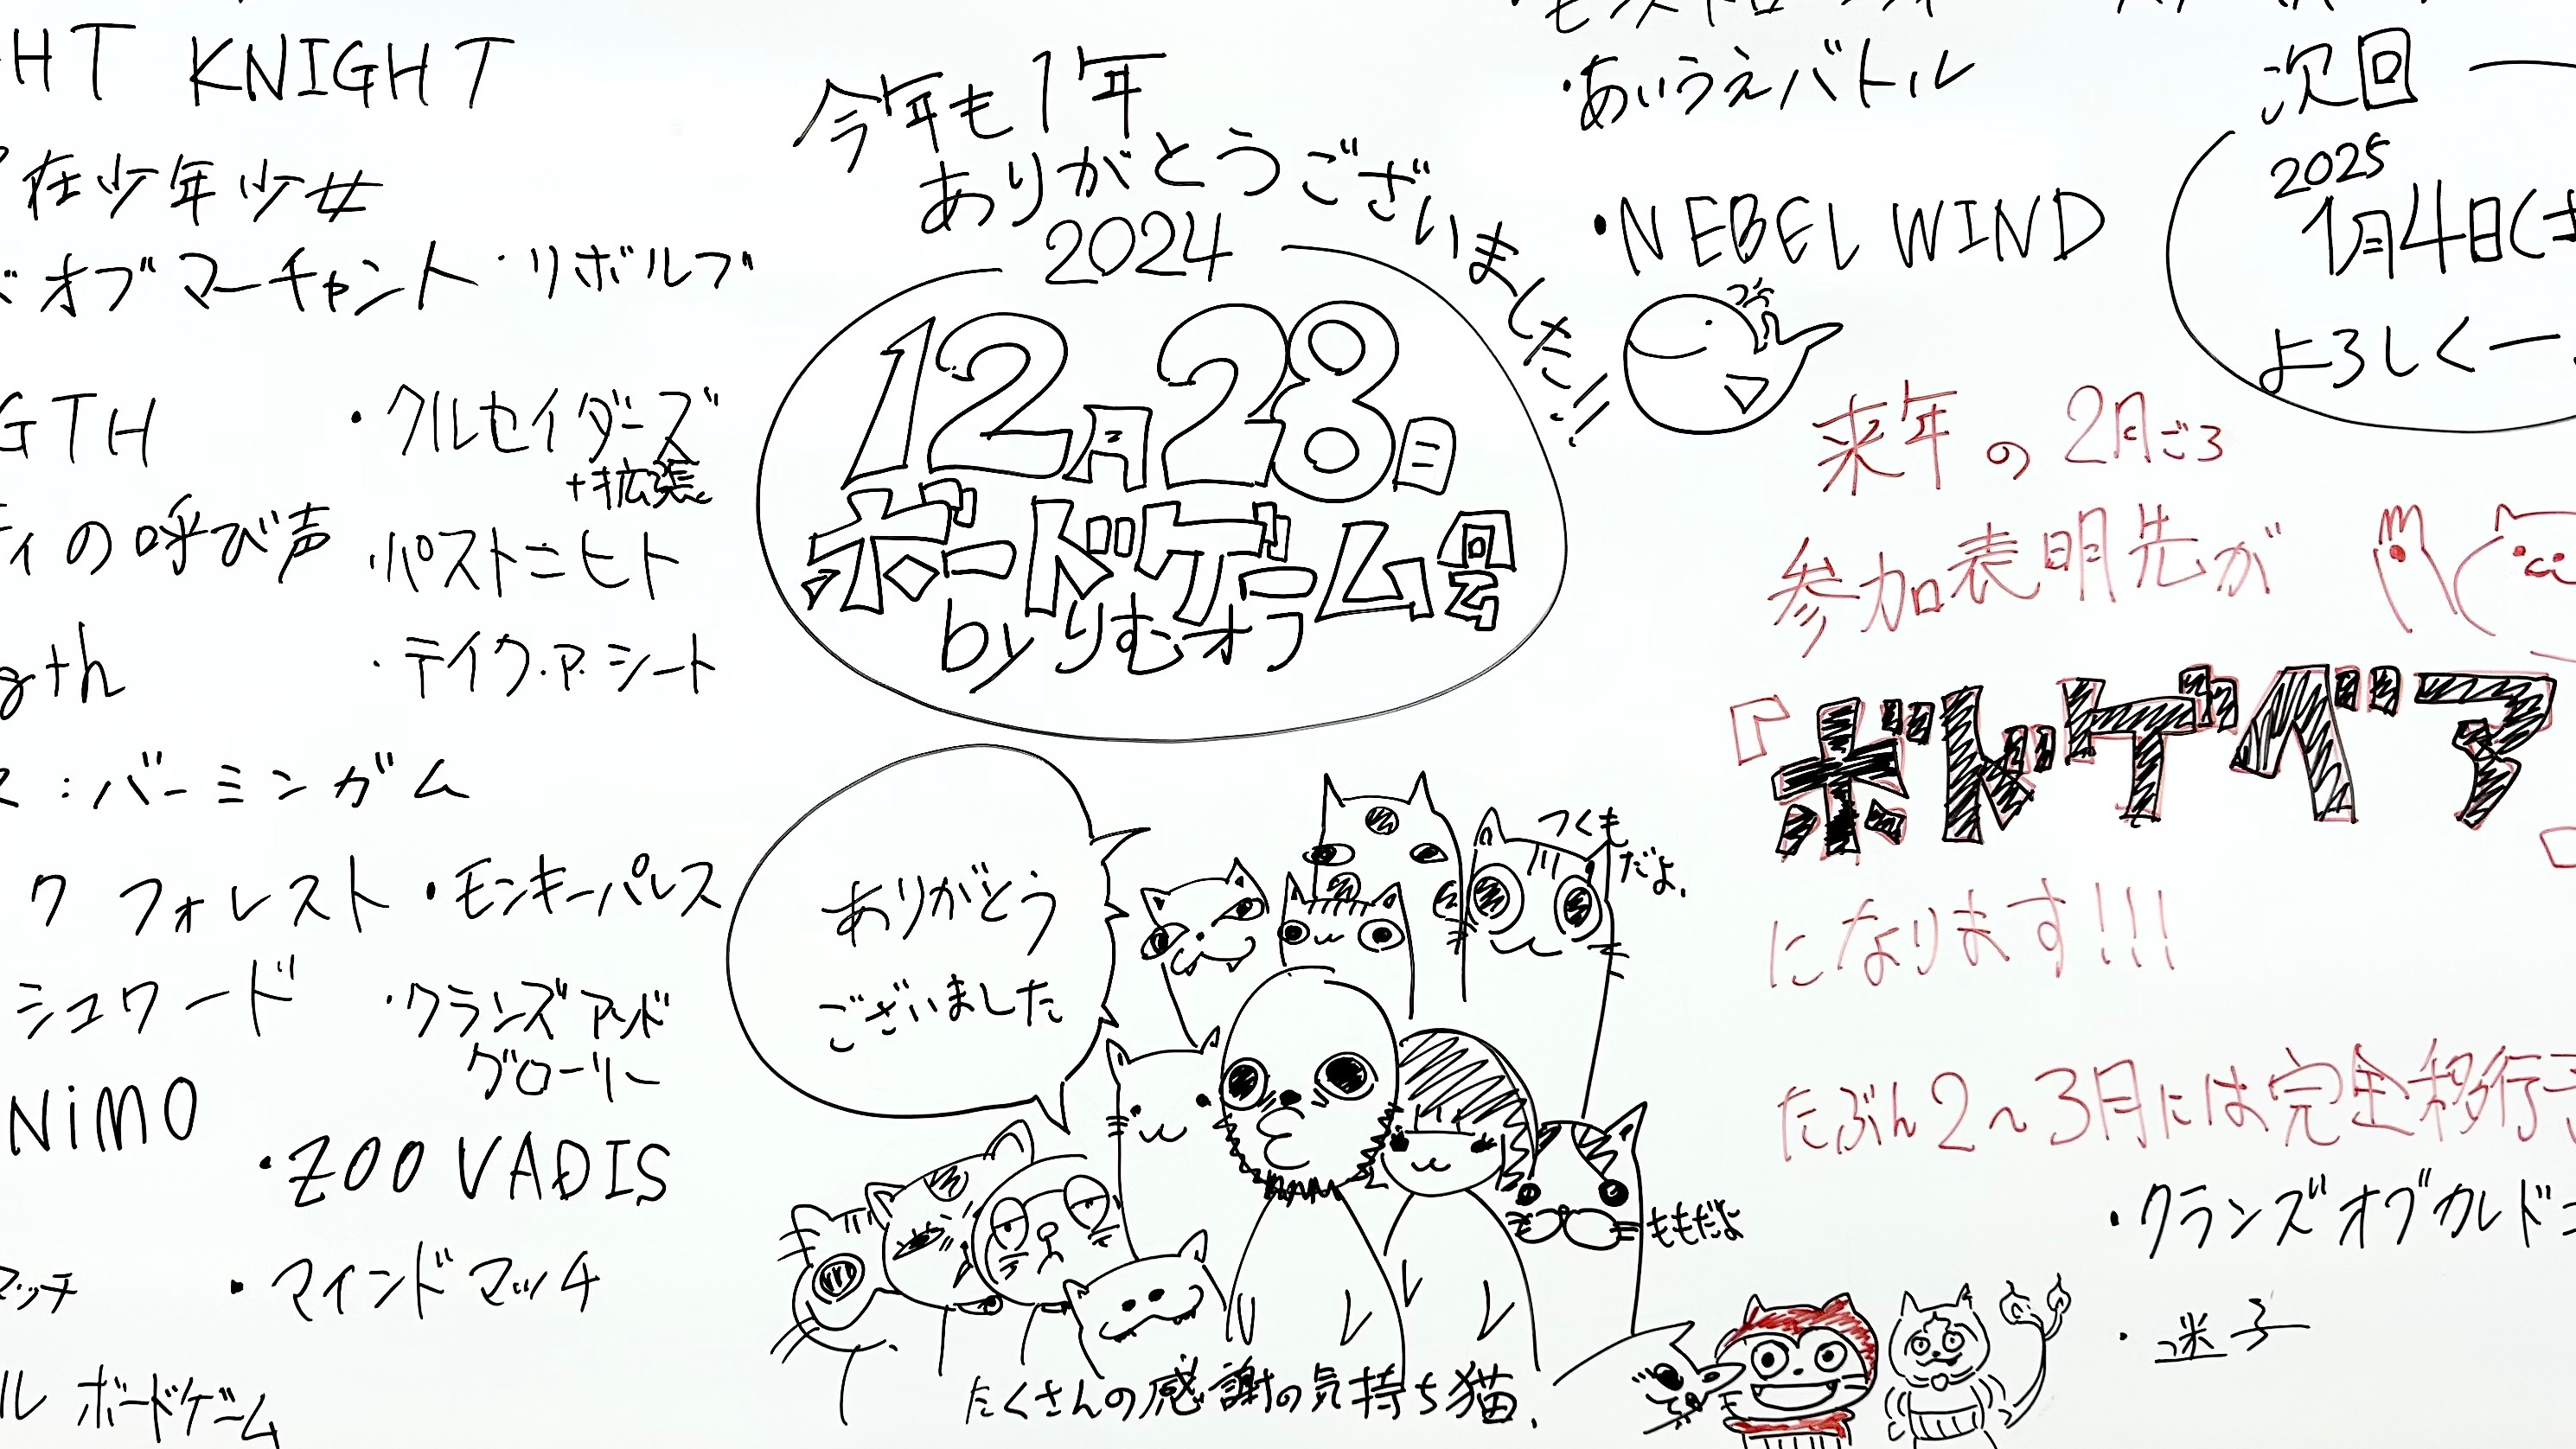 KNIGHT
在少年少女
オブマーチャント
・リボルブ
GTH
・クルセイダーズ
+拡張
ティの呼び声
・パストニヒト
gth
・テイク・ア・シート
ス:バーミンガム
フォレスト
・モンキーパレス
シュワード
・クランズアンド
グローリー
NiMO
・ZOO VADIS
マッチ
・マインドマッチ
ル ボードゲーム
今年も1年
ありがとうございました!!
2024
12月28日
ボードゲーム会
by りむオフ
ありがとう
ございました
つくも
だよ.
ももだよ
たくさんの感謝の気持ち猫.
・あいうえバトル
・NEBEL WIND
次回
2025
1月4日(土
よろしくー
来年の2月ごろ
参加表明先が
『ボドゲベア』
になります!!!
たぶん2~3月には完全移行
・クランズオブカルド
・迷子